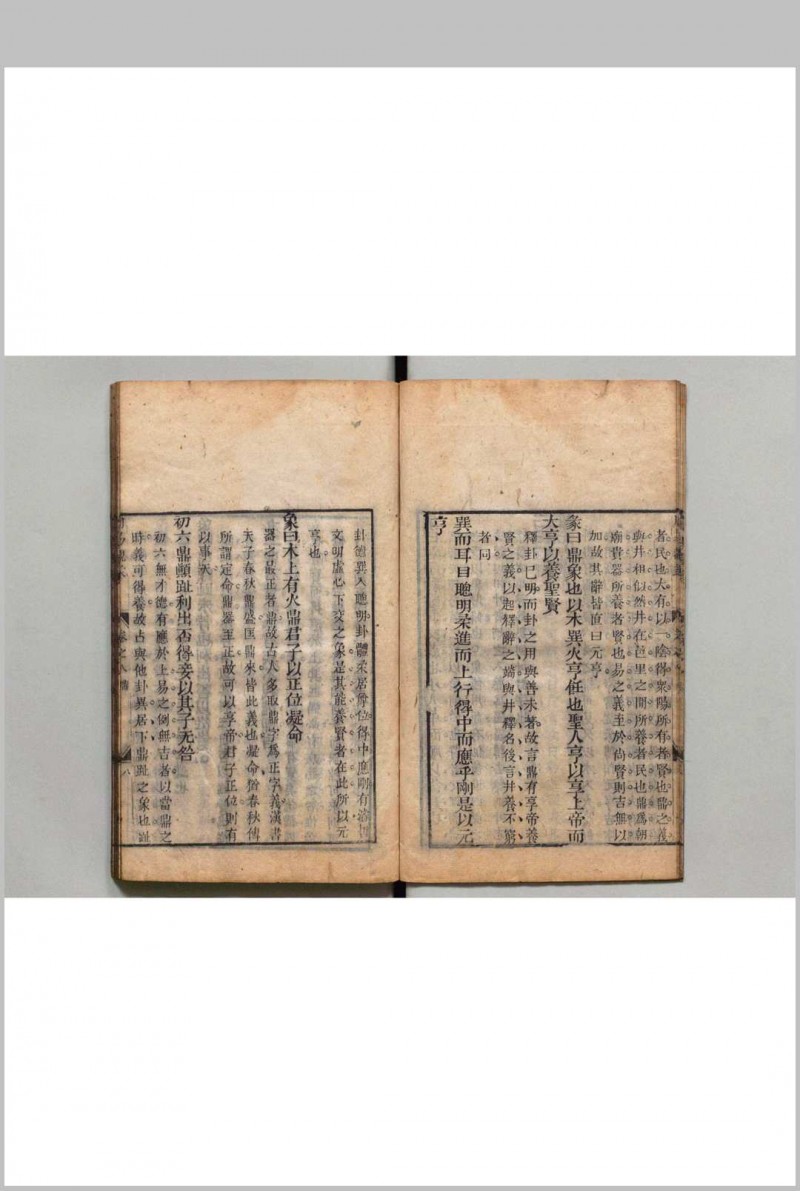 者民也大有以一陰得衆陽所有者賢也鼎之義
與井相似然井在邑里之間所養者民也鼎爲朝
廟貴器所養者賢也易之義至於尚賢則吉無以
加故其辭皆直曰元亨
彖曰鼎象也以木巽火亨飪也聖人亨以享上帝而
大亨以養聖賢
釋卦已明而卦之用與善未著故言鼎有享帝養
賢之義以起釋辭之端與井釋名後言井養不窮
者同
巽而耳目聰明柔進而上行得中而應乎剛是以元
亨
卦體巽入聰明卦體柔居尊位得中應剛有
文明虛心下交之象是其能養賢者在此所以元
亨也
象曰木上有火鼎君子以正位凝命
器之最正者鼎故古人多取鼎字爲正字義漢書
天子春秋鼎盛匡鼎來皆此義也凝命猶春秋傳
所謂定命鼎器至正故可以享帝君子正位則有
以事天
初六鼎顚趾利出否得妾以其子无咎
初六無才德有應於上易之例無吉者以當鼎之
時義可得養故占與他卦異居下鼎趾之象也趾
八